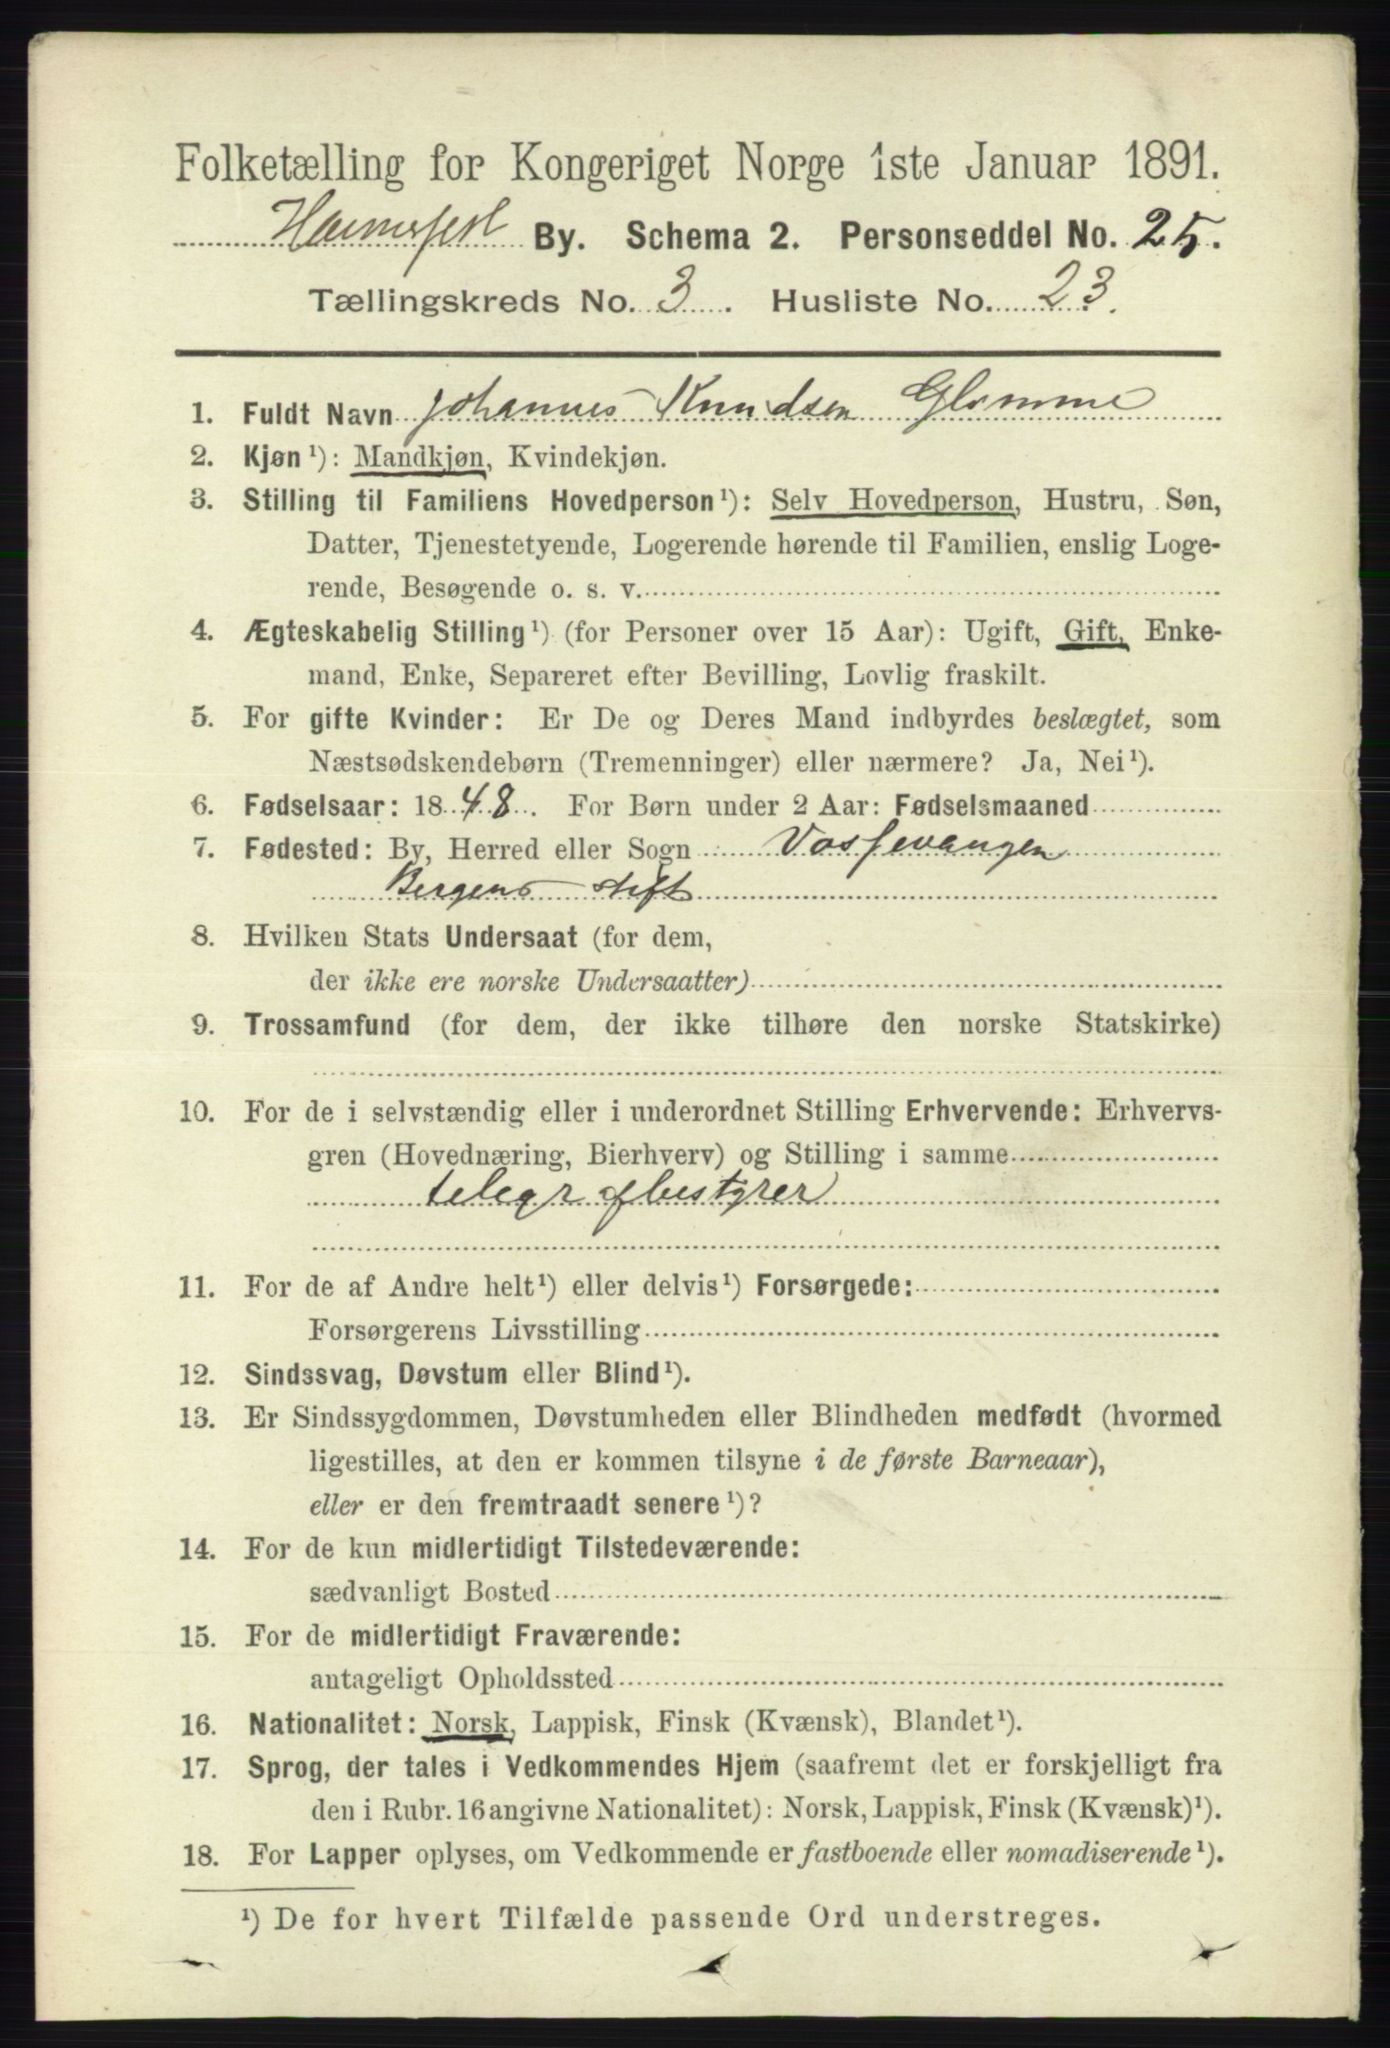 Folketælling for Kongeriget Norge 1ste Januar 1891.
Hammerfest By. Schema 2. Personseddel No. 25.
Tællingskreds No. 3. Husliste No. 23.
1. Fuldt Navn Johannes Knudsen Glimme
2. Kjøn¹): Mandkjøn, Kvindekjøn.
3. Stilling til Familiens Hovedperson¹): Selv Hovedperson, Hustru, Søn,
Datter, Tjenestetyende, Logerende hørende til Familien, enslig Loge-
rende, Besøgende o. s. v.
4. Ægteskabelig Stilling¹) (for Personer over 15 Aar): Ugift, Gift, Enke-
mand, Enke, Separeret efter Bevilling, Lovlig fraskilt.
5. For gifte Kvinder: Er De og Deres Mand indbyrdes beslægtet, som
Næstsødskendebørn (Tremenninger) eller nærmere? Ja, Nei¹).
6. Fødselsaar: 1848. For Børn under 2 Aar: Fødselsmaaned
7. Fødested: By, Herred eller Sogn Vossevangen
Bergens stift
8. Hvilken Stats Undersaat (for dem,
der ikke ere norske Undersaatter)
9. Trossamfund (for dem, der ikke tilhøre den norske Statskirke)
10. For de i selvstændig eller i underordnet Stilling Erhvervende: Erhvervs-
gren (Hovednæring, Bierhverv) og Stilling i samme
telegrafbestyrer
11. For de af Andre helt¹) eller delvis¹) Forsørgede:
Forsørgerens Livsstilling
12. Sindssvag, Døvstum eller Blind¹).
13. Er Sindssygdommen, Døvstumheden eller Blindheden medfødt (hvormed
ligestilles, at den er kommen tilsyne i de første Barneaar),
eller er den fremtraadt senere¹)?
14. For de kun midlertidigt Tilstedeværende:
sædvanligt Bosted
15. For de midlertidigt Fraværende:
antageligt Opholdssted
16. Nationalitet: Norsk, Lappisk, Finsk (Kvænsk), Blandet¹).
17. Sprog, der tales i Vedkommendes Hjem (saafremt det er forskjelligt fra
den i Rubr. 16 angivne Nationalitet): Norsk, Lappisk, Finsk (Kvænsk)¹).
18. For Lapper oplyses, om Vedkommende er fastboende eller nomadiserende¹).
¹) De for hvert Tilfælde passende Ord understreges.